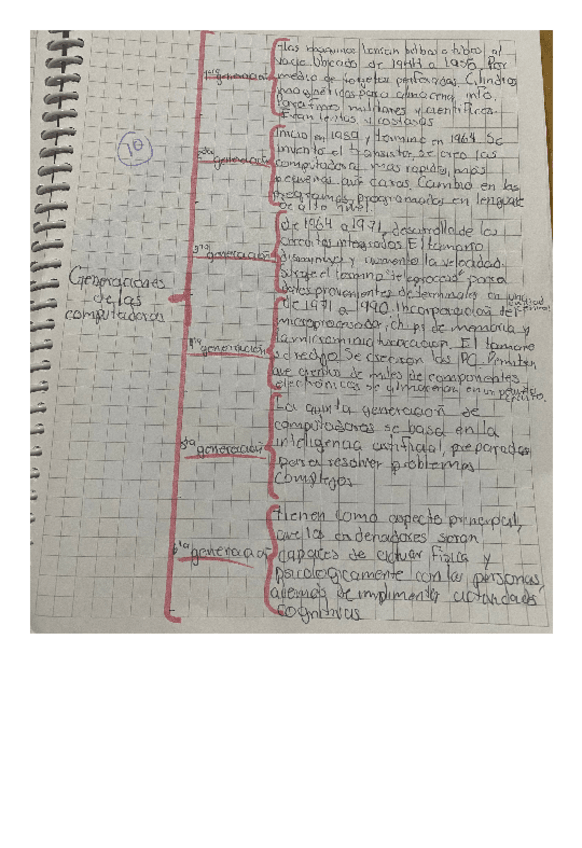 10
Generaciones
de las
computadoras
1ra generación
Las maquinas tenian bulbos o tubos al
vacio. Ubicado de 1944 a 1956. Por
medio de tarjetas perforadas. Cilindros
magnéticos para almacenar info.
Para fines militares y cientificos.
Eran lentas y costosas
generación
Inicio en 1959 y termino en 1964. Se
invento el transistor, se creo las
computadoras mas rapidas, mas
pequeñas, que caras. Cambio en las
programas, programados en lenguaje
de alto nivel.
3ra generación
De 1964 a 1971, desarrolla de los
circuitos integrados. El tamaño
disminuyo y aumento la velocidad.
Surge el termino para
datos provenientes de terminales en
generación
De 1971 a 1990. Incorporación del
microprocesador, chips de memoria y
la microminiaturización. El tamaño
redujo. Se crearon las PC. Permiten
que de miles de componentes
electrónicos se almacenan en un
5ta generación
La quinta generación de
computadoras se basa en la
inteligencia artificial, preparadas
para resolver problemas
complejos
6ta generación
Tienen como aspecto principal,
que los ordenadores seran
capaces de actuar fisica y
psicologicamente con las personas,
ademas de implimentar actividades
cognitivas